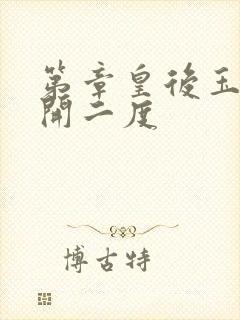 第章皇後玉
開二度
博古特